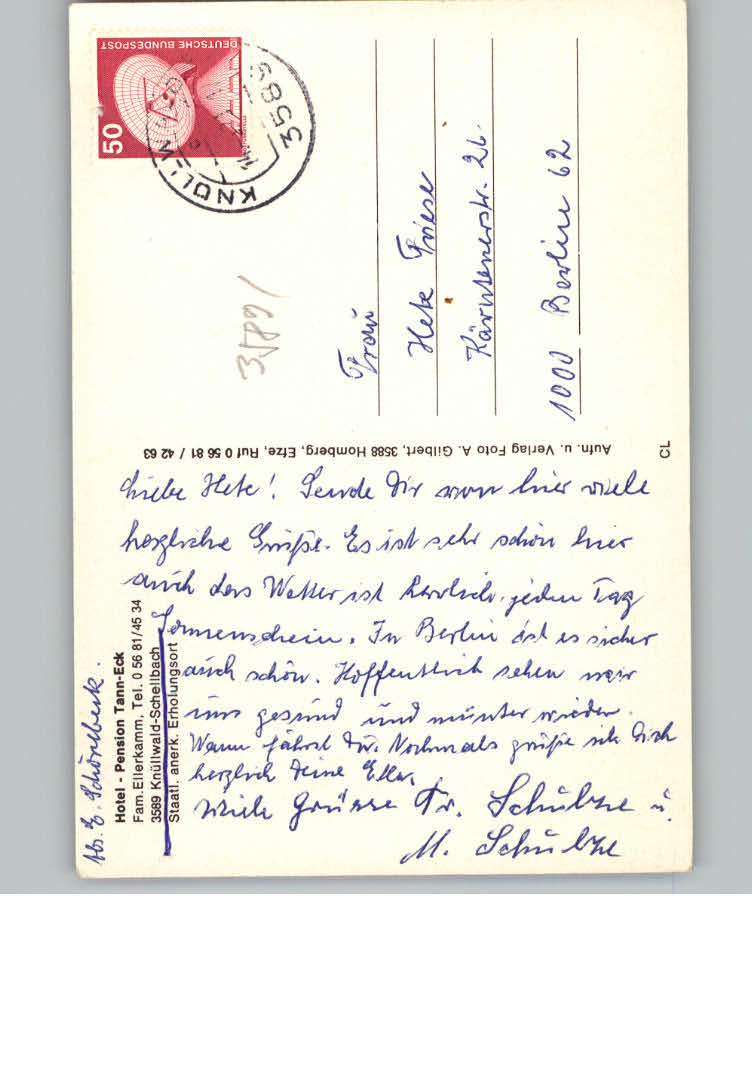 Abs. E. Schönebeck.
Hotel - Pension Tann-Eck
Fam. Ellerkamm, Tel. 0 56 81/45 34
3589 Knüllwald-Schellbach
Staatl. anerk. Erholungsort
Liebe Hete! Sende Dir von hier viele
herzliche Grüße. Es ist sehr schön hier
auch das Wetter ist herrlich. jeden Tag
Sonnenschein. In Berlin ist es sicher
auch schön. Hoffentlich sehen wir
uns gesund und munter wieder.
Wann fährst Du. Nochmals grüße ich Dich
herzlich Deine Ella.
Viele Grüsse Fr. Schulze u.
M. Schulze
Aufn. u. Verlag Foto A. Gilbert, 3588 Homberg, Efze, Ruf 0 56 81 / 42 63
CL
DEUTSCHE BUNDESPOST
50
3589
KNÜLLW
35891
Frau
Hete Friese
Kärntenerstr. 26.
1000 Berlin 62